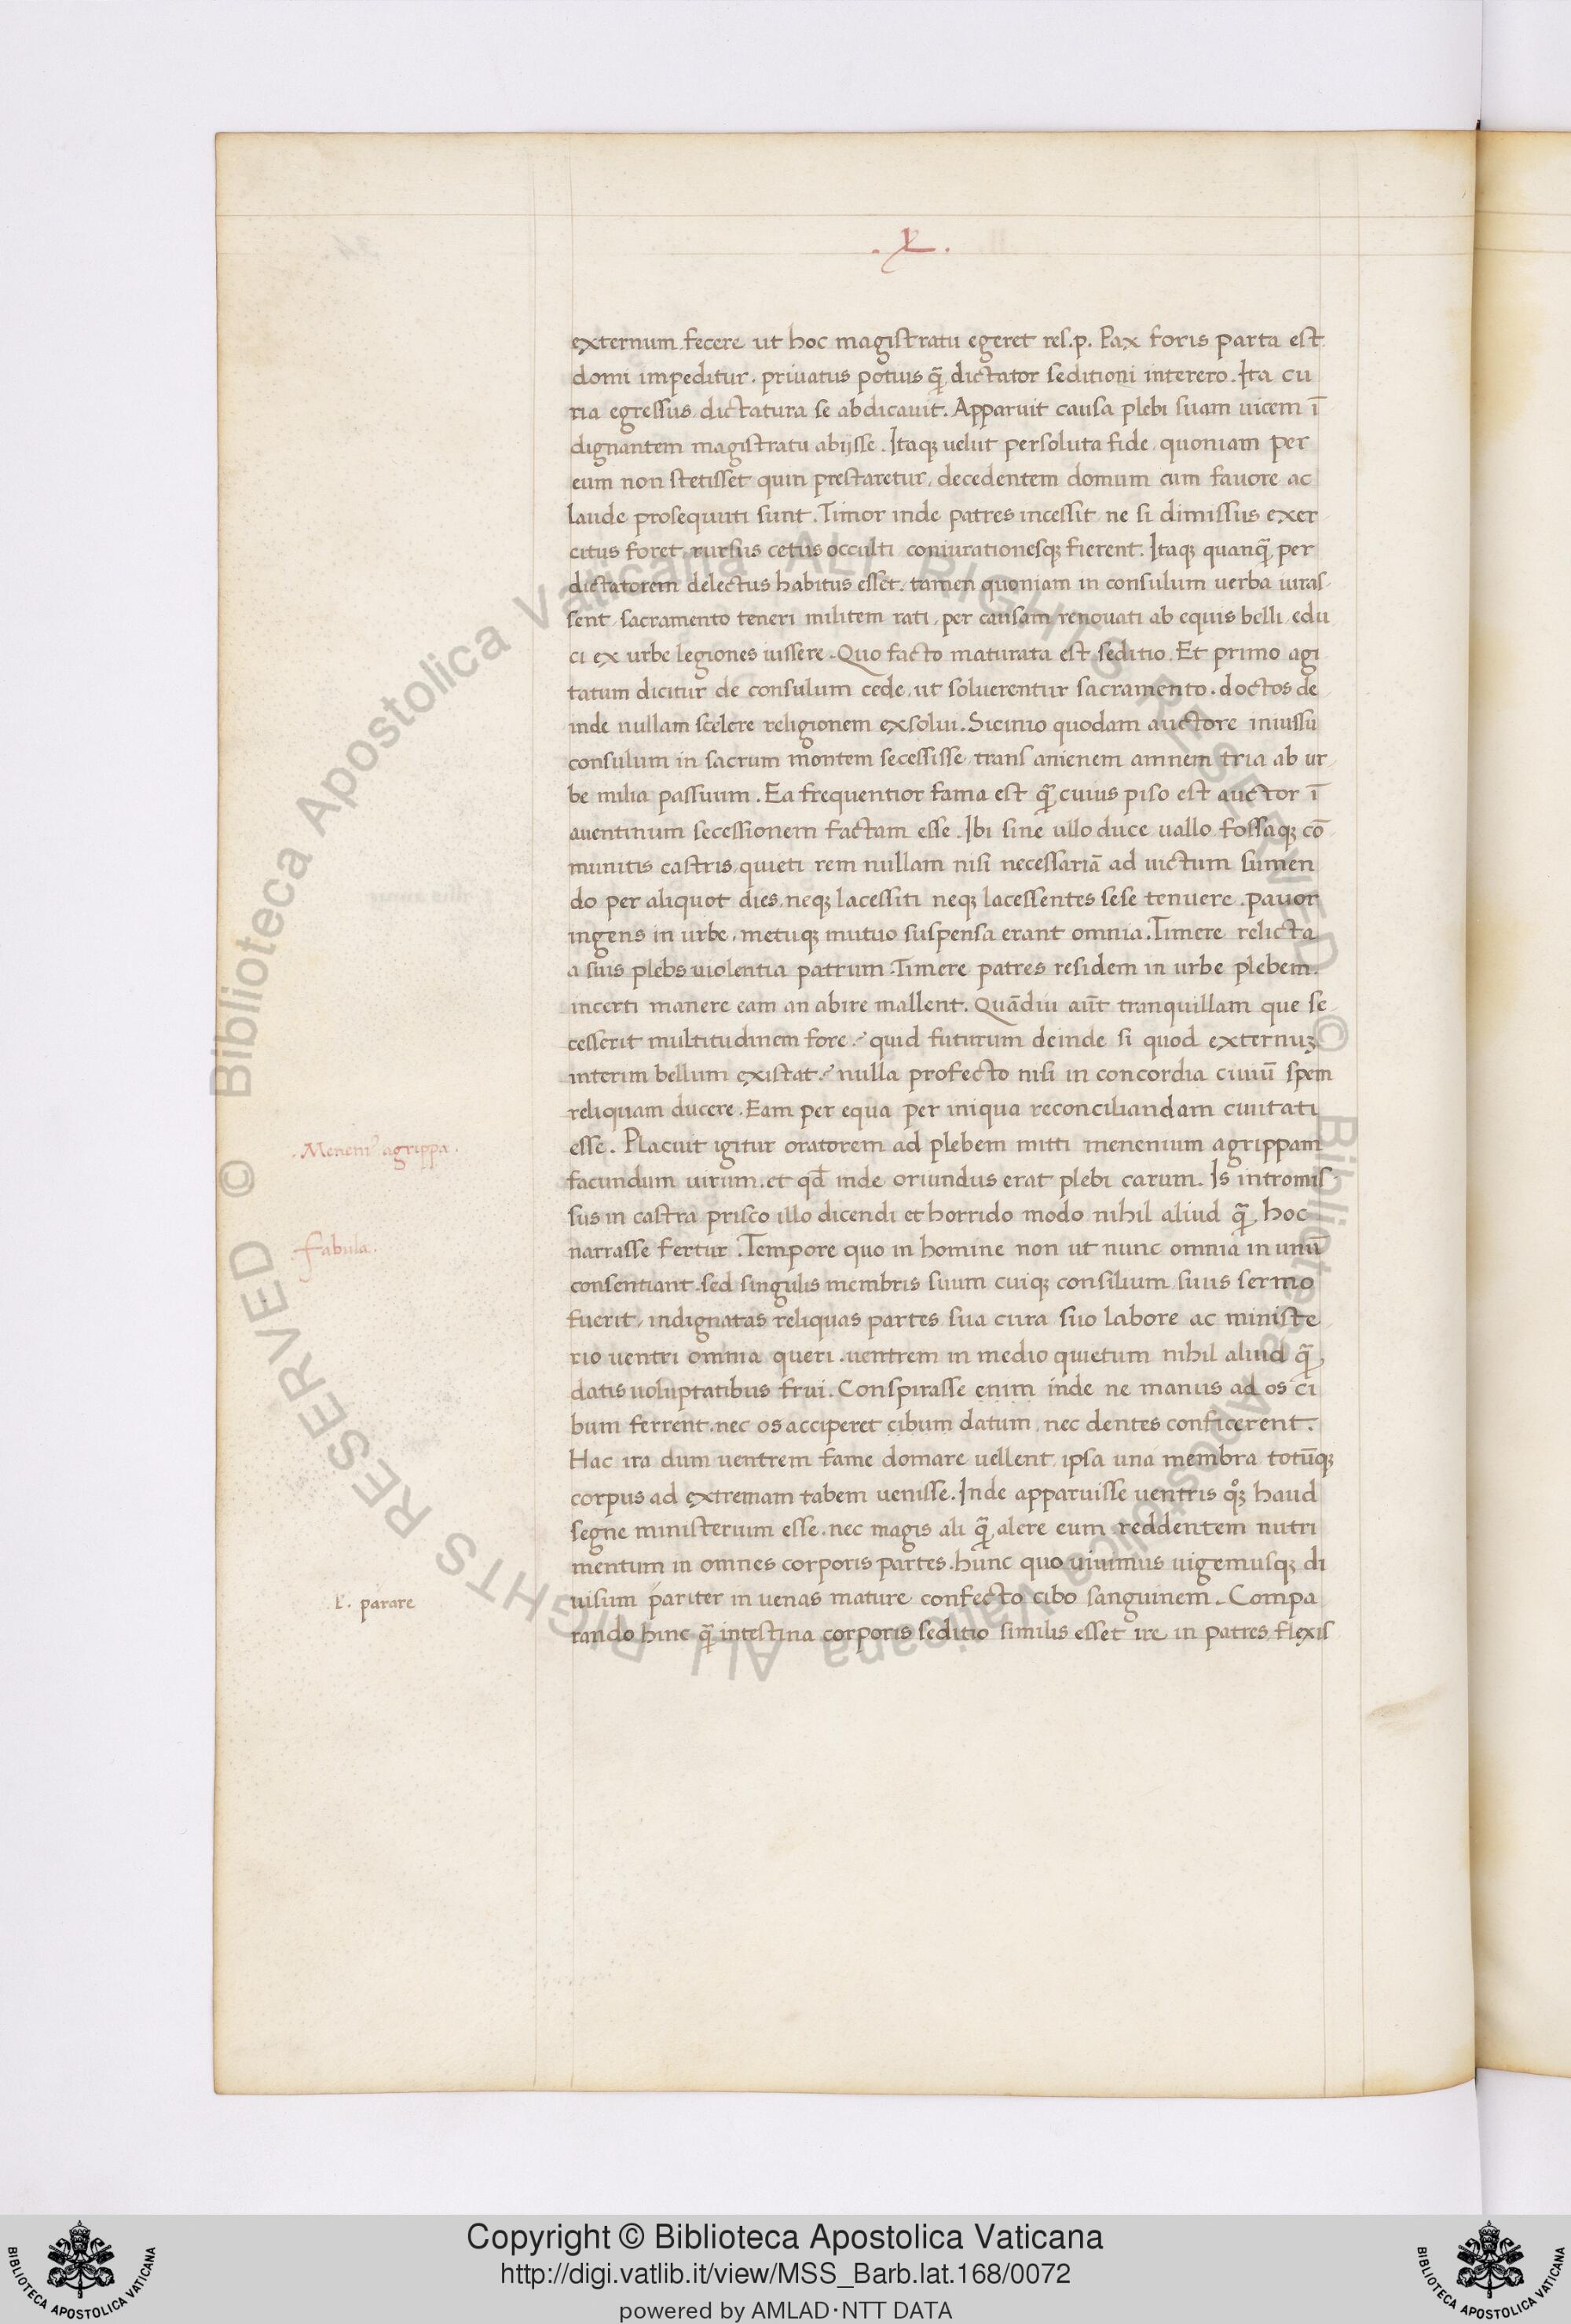 .L.
externum fecere ut hoc magistratu egeret res.p. Pax foris parta est
domi impeditur. priuatus potius q̃ dictator seditioni interero. Ita cu
ria egressus dictatura se abdicauit. Apparuit causa plebi suam uicem ī
dignantem magistratu abijsse. Itaqʒ uelut persoluta fide quoniam per
eum non stetisset quin prestaretur, decedentem domum cum fauore ac
laude prosequuti sunt. Timor inde patres incessit ne si dimissus exer
citus foret rursus cetus occulti coniurationesqʒ fierent. Itaqʒ quanq̃ per
dictatorem delectus habitus esset. tamen quoniam in consulum uerba iuras
sent sacramento teneri militem rati, per causam renouati ab equis belli edu
ci ex urbe legiones iussere. Quo facto maturata est seditio. Et primo agi
tatum dicitur de consulum cede, ut soluerentur sacramento. doctos de
inde nullam scelere religionem exsolui. Sicinio quodam auctore iniussu
consulum in sacrum montem secessisse trans anienem amnem tria ab ur
be milia passuum. Ea frequentior fama est q̃ cuius piso est auctor ī
auentinum secessionem factam esse. Ibi sine ullo duce uallo fossaqʒ cō
munitis castris quieti rem nullam nisi necessariā ad uictum sumen
do per aliquot dies neqʒ lacessiti neqʒ lacessentes sese tenuere. pauor
ingens in urbe, metuqʒ mutuo suspensa erant omnia. Timere relicta
a suis plebs uiolentia patrum. Timere patres residem in urbe plebem.
incerti manere eam an abire mallent. Quādiu aūt tranquillam que se
cesserit multitudinem fore. quid futurum deinde si quod externuʒ
interim bellum existat. nulla profecto nisi in concordia ciuiū spem
reliquam ducere. Eam per equa per iniqua reconciliandam ciuitati
.Meneni' agrippa.
esse. Placuit igitur oratorem ad plebem mitti menenium agrippam
facundum uirum. et qd̄ inde oriundus erat plebi carum. Is intromis
sus in castra prisco illo dicendi et horrido modo nihil aliud q̃ hoc
fabula.
narrasse fertur. Tempore quo in homine non ut nunc omnia in unū
consentiant. sed singulis membris suum cuiqʒ consilium suus sermo
fuerit, indignatas reliquas partes sua cura suo labore ac ministe
rio uentri omnia queri. uentrem in medio quietum nihil aliud q̃
datis uoluptatibus frui. Conspirasse enim inde ne manus ad os ci
bum ferrent. nec os acciperet cibum datum, nec dentes conficerent.
Hac ira dum uentrem fame domare uellent ipsa una membra totūqʒ
corpus ad extremam tabem uenisse. Inde apparuisse uentris qͦʒ haud
segne ministerium esse. nec magis ali q̃ alere eum reddentem nutri
mentum in omnes corporis partes. hunc quo uiuimus uigemusqʒ di
l'. parare
uisum pariter in uenas mature confecto cibo sanguinem. Compa
rando hinc q̃ intestina corporis seditio similis esset ire in patres flexis
© Biblioteca Apostolica Vaticana ALL RIGHTS RESERVED © Biblioteca Apostolica Vaticana ALL RIGHTS RESERVED
Copyright © Biblioteca Apostolica Vaticana
http://digi.vatlib.it/view/MSS_Barb.lat.168/0072
powered by AMLAD·NTT DATA
BIBLIOTECA APOSTOLICA VATICANA
BIBLIOTECA APOSTOLICA VATICANA